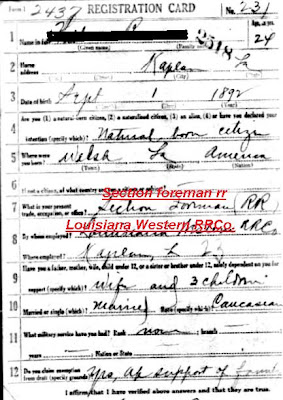 Form 1 2437 REGISTRATION CARD No. 231
1 Name in full Age, in yrs.
(Given name) (Family name) 24
2518
2 Home address Kaplan La
3 Date of birth Sept 1 1892
Are you (1) a natural-born citizen, (2) a naturalized citizen, (3) an alien, (4) or have you declared your
4 intention (specify which)? Natural born citizen
5 Where were you born? Welsh La America
(Town) (State) (Nation)
6 If not a citizen, of what country
Section foreman rr
7 What is your present trade, occupation, or office? Section Forman (RR)
Louisiana Western RRCo.
8 By whom employed? Louisiana Western RRCo
Where employed? Kaplan La
9 Have you a father, mother, wife, child under 12, or a sister or brother under 12, solely dependent on you for
support (specify which)? Wife and 3 children
10 Married or single (which)? Married Race (specify which)? Caucasian
11 What military service have you had? Rank none ; branch
years ; Nation or State
12 Do you claim exemption from draft (specify grounds)? Yes, support of
I affirm that I have verified above answers and that they are true.